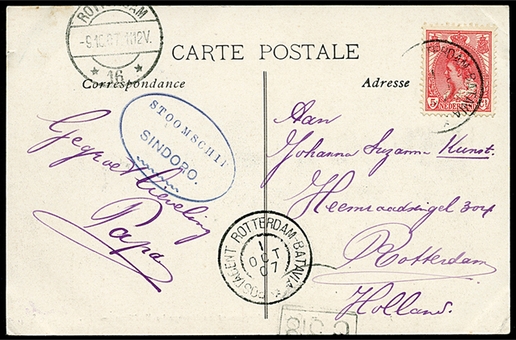 ROTTERDAM
-9.10.07 1112V.
* 16 *
CARTE POSTALE
Correspondance
Adresse
STOOMSCHIP
SINDORO.
Gegroet lieveling
Papa
5
NEDERLAND
Aan
Johanna Suzanna Kunst.
Heemraadsingel
Rotterdam
Holland.
POSTAGENT ROTTERDAM-BATAVIA *
1
OCT
07